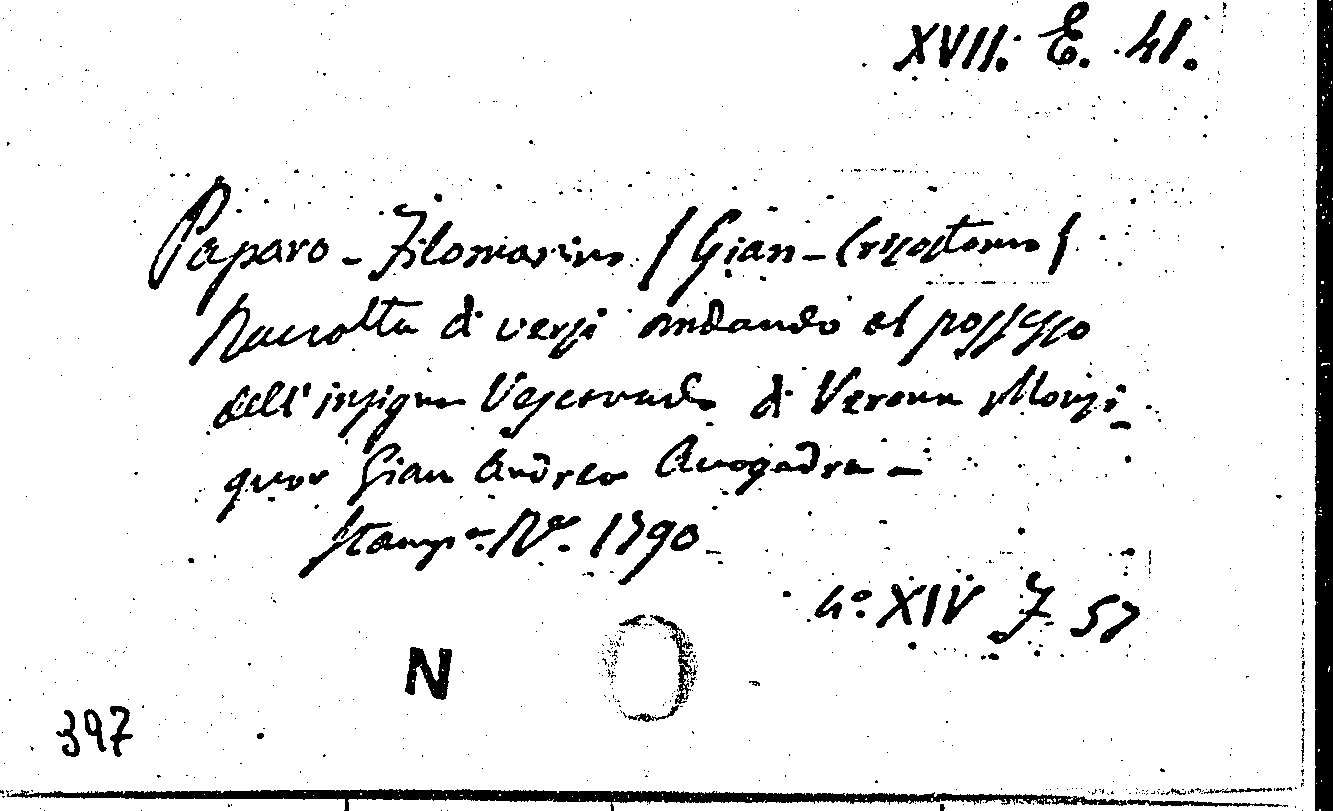 XVII. E. 41.
Paparo - Filomarino / Gian - Crisostomo /
Raccolta di versi andando al possesso
dell' insigne Vescovado di Verona Monsi_
gnor Gian Andrea Avogadro -
Stamp. 1790
4:º XIV F 57
N
397